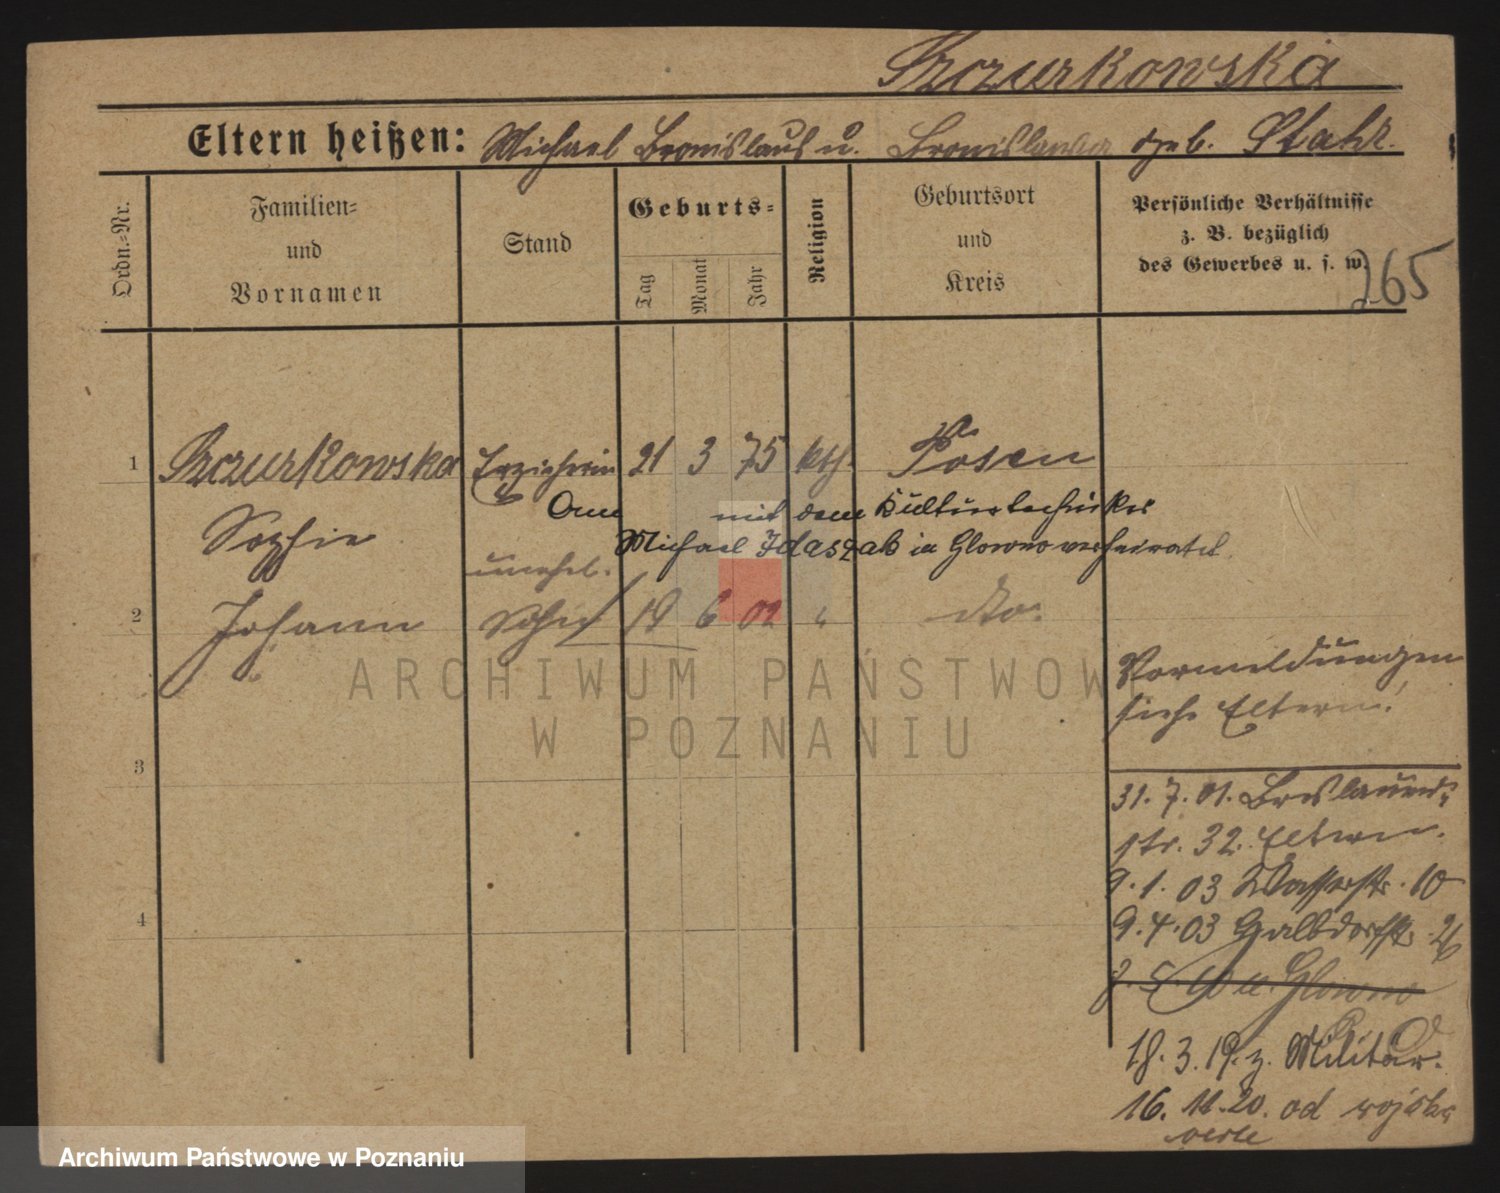 Szczurkowska
Eltern heißen: Michael Bronislaus u. Bronislawa geb. Stahr.
Ordn.=Nr.
Familien=
und
Vornamen
Stand
Geburts=
Tag
Monat
Jahr
Religion
Geburtsort
und
Kreis
Persönliche Verhältnisse
z. B. bezüglich
des Gewerbes u. s. w.
265
1 Szczurkowska Erzieherin 21 3 75 kth. Posen
mit dem Kulturtechniker
Sophie
Michael Idaszak in Glowno verheiratet
unehel.
2 Johann Sohn 19 6 02 " dto.
Vormeldungen
siehe Eltern!
3
31. 7. 01. Breslauer=
str. 32. Eltern.
9. 1. 03 Wasserstr. 10
9. 4. 03 Halbdorfstr. 26
4
Glowno
18. 3. 19. z. Militär.
16. 11. 20. od wojska
ARCHIWUM PAŃSTWOWE
W POZNANIU
Archiwum Państwowe w Poznaniu